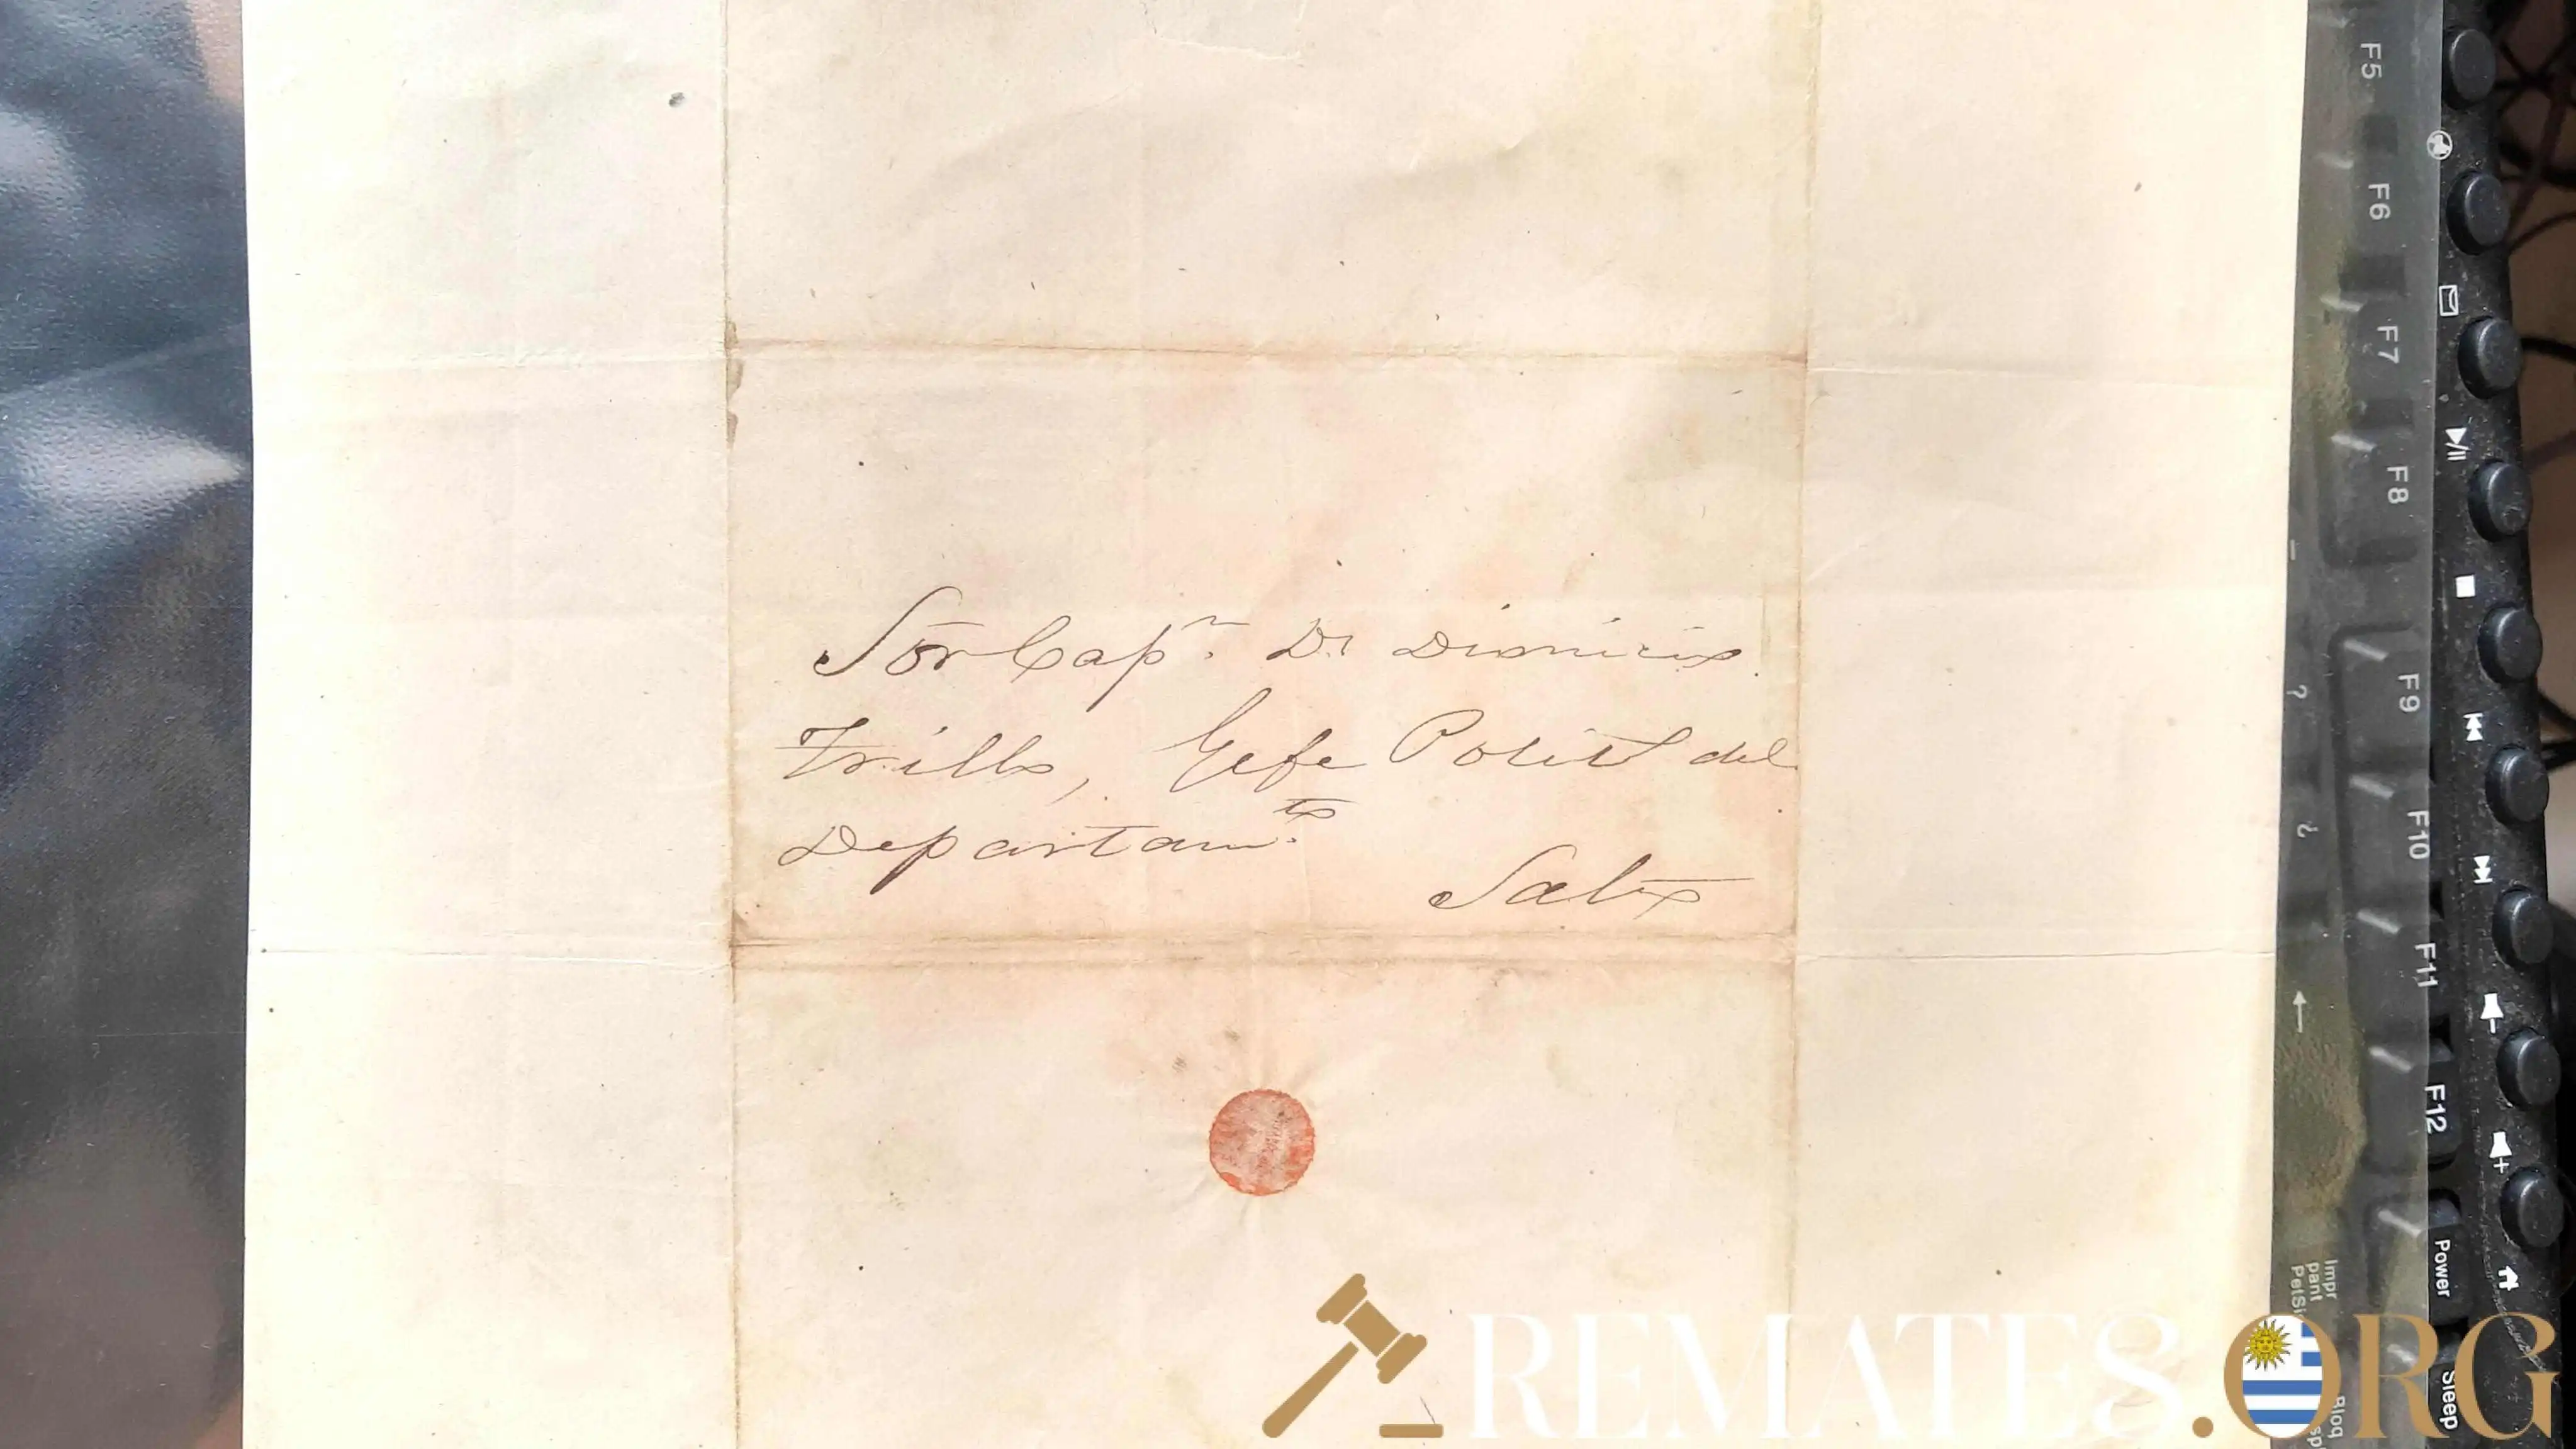 Sōr Cap.n D.n Dionicio
Trillo, Gefe Polit.o del
Departam.to
Salto
F5
F6
F7
F8
F9
F10
F11
F12
Impr
pant
PetSis
Power
Sleep
REMATES.ORG